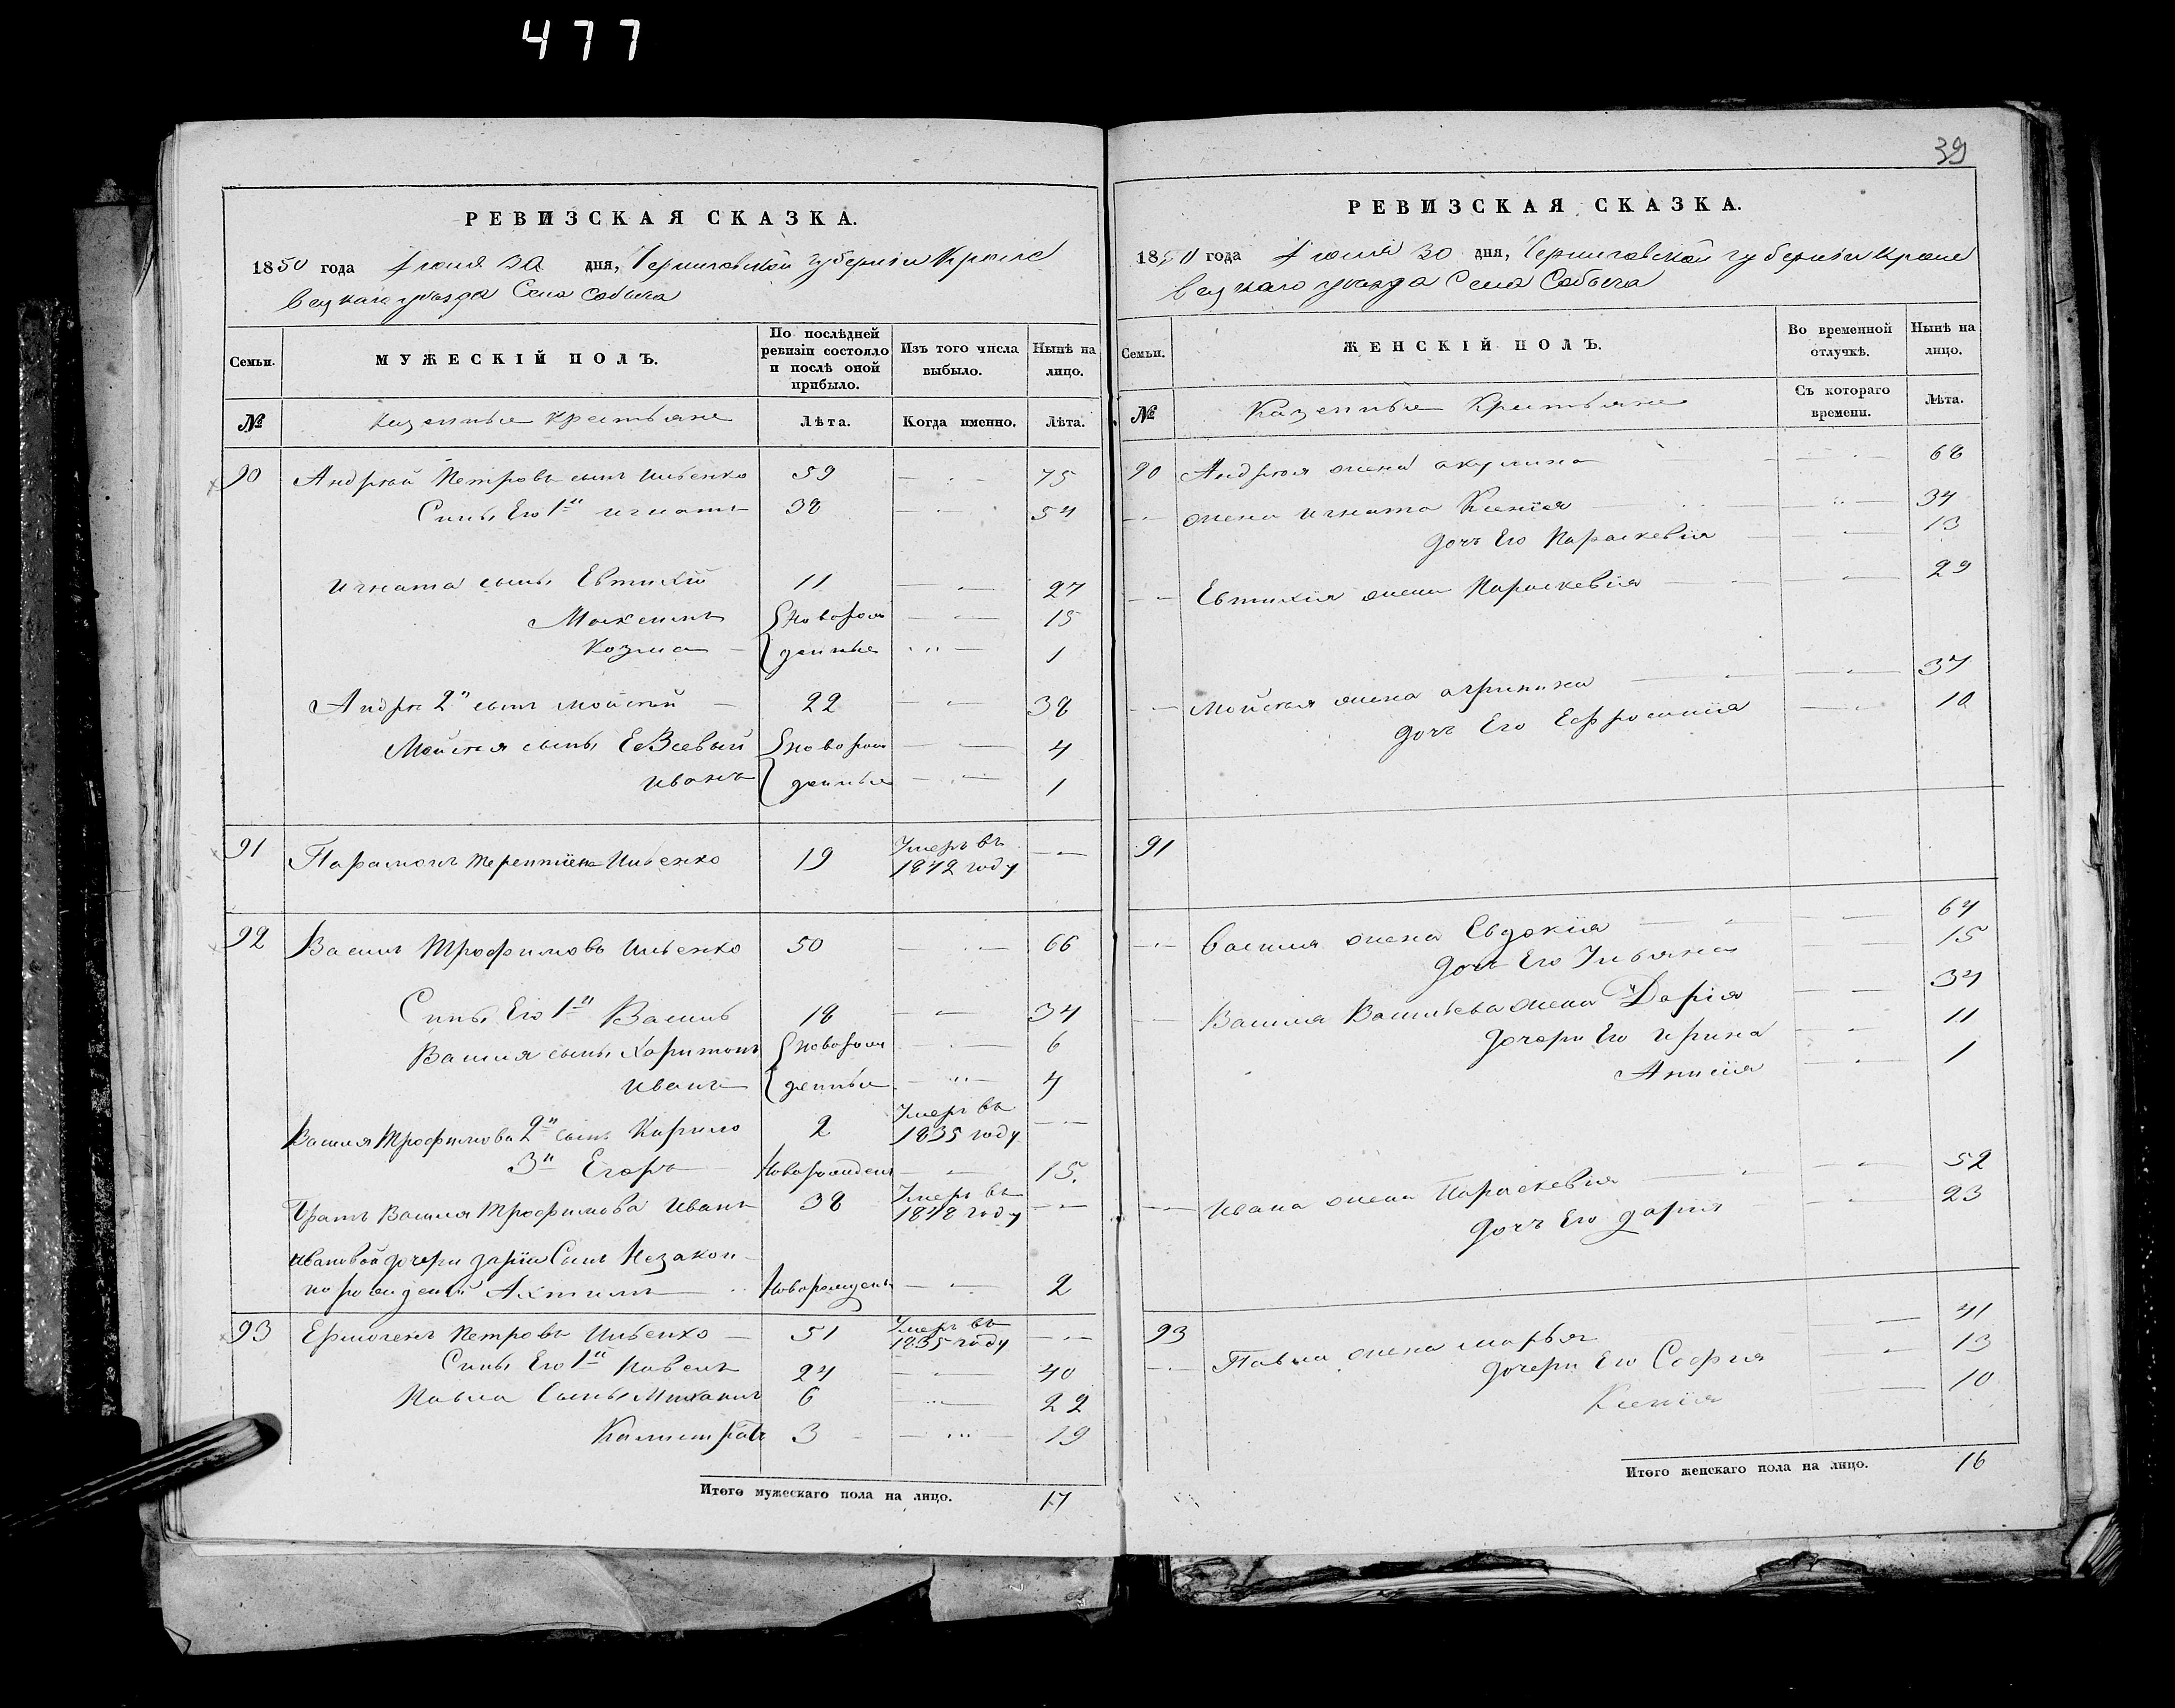 477
39
РЕВИЗСКАЯ СКАЗКА.
1850 года Июня 30 дня, Черниговской губернии Кроле
вецкаго уезда Села Собыча
Семьи.
МУЖЕСКІЙ ПОЛЪ.
По послѣдней ревизіи состояло и послѣ оной прибыло.
Изъ того числа выбыло.
Нынѣ на лицо.
№
Казенные Крестьяне
Лѣта.
Когда именно.
Лѣта.
90 Андрей Петровъ сынъ Ильенко 59 — 75
Сины Его 1й Игнатъ 38 — 54
Игната сыны Евтихій 11 — 27
Максимъ новорож — 15
Козма денные — 1
Андрея 2й сынъ Мойсей 22 — 38
Мойсея сыны Евсевый новорож — 4
Иванъ денные — 1
91 Парамонъ Терентіевъ Ильенко 19 Умеръ въ 1842 году —
92 Василь Трофимовъ Ильенко 50 — 66
Сины Его 1й Василь 18 — 34
Василя сыны Харитонъ новорож — 6
Иванъ денные — 4
Василя Трофимова 2й сынъ Кирило 2 Умеръ въ 1835 году —
3й Егоръ Новорожденъ — 15.
Братъ Василя Трофимова Иванъ 38 Умеръ въ 1848 году —
Ивановой дочери Даріи Синъ Незакон
норожденый Новорожденъ — 2
93 Ермогенъ Петровъ Ильенко — 51 Умеръ въ 1835 году —
Сины Его 1й Павелъ 24 — 40
Павла Сыны Михаилъ 6 — 22
Калистратъ 3 — 19
Итого мужескаго пола на лицо. 17
РЕВИЗСКАЯ СКАЗКА.
1850 года Июня 30 дня, Черниговской губернии Кроле
вецкаго уезда Села Собыча
Семьи.
ЖЕНСКІЙ ПОЛЪ.
Во временной отлучкѣ.
Нынѣ на лицо.
№
Казенные Крестьяне
Съ котораго времени.
Лѣта.
90 Андрея жена Акулина — 68
жена Игната Ксенія — 34
дочь Его Параскевія — 13
Евтихія жена Параскевія — 29
Мойсея жена Агрипина — 37
дочь Его Ефросинія — 10
91
Василя жена Евдокія — 64
дочь Его Ульяна — 15
Василя Васильева жена Дарія — 34
дочери Его Ирина — 11
— 1
Ивана жена Параскевія — 52
дочь Его Дарія — 23
93
Павла жена Марья — 41
дочери Его Софія — 13
Ксенія — 10
Итого женскаго пола на лицо. 16